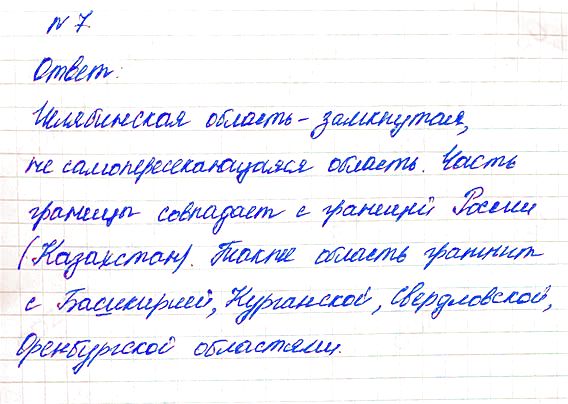 № 7.
Ответ:
Челябинская область – замкнутая,
не самопересекающаяся область. Часть
границы совпадает с границей России
(Казахстан). Также область граничит
с Башкирией, Курганской, Свердловской,
Оренбургской областями.